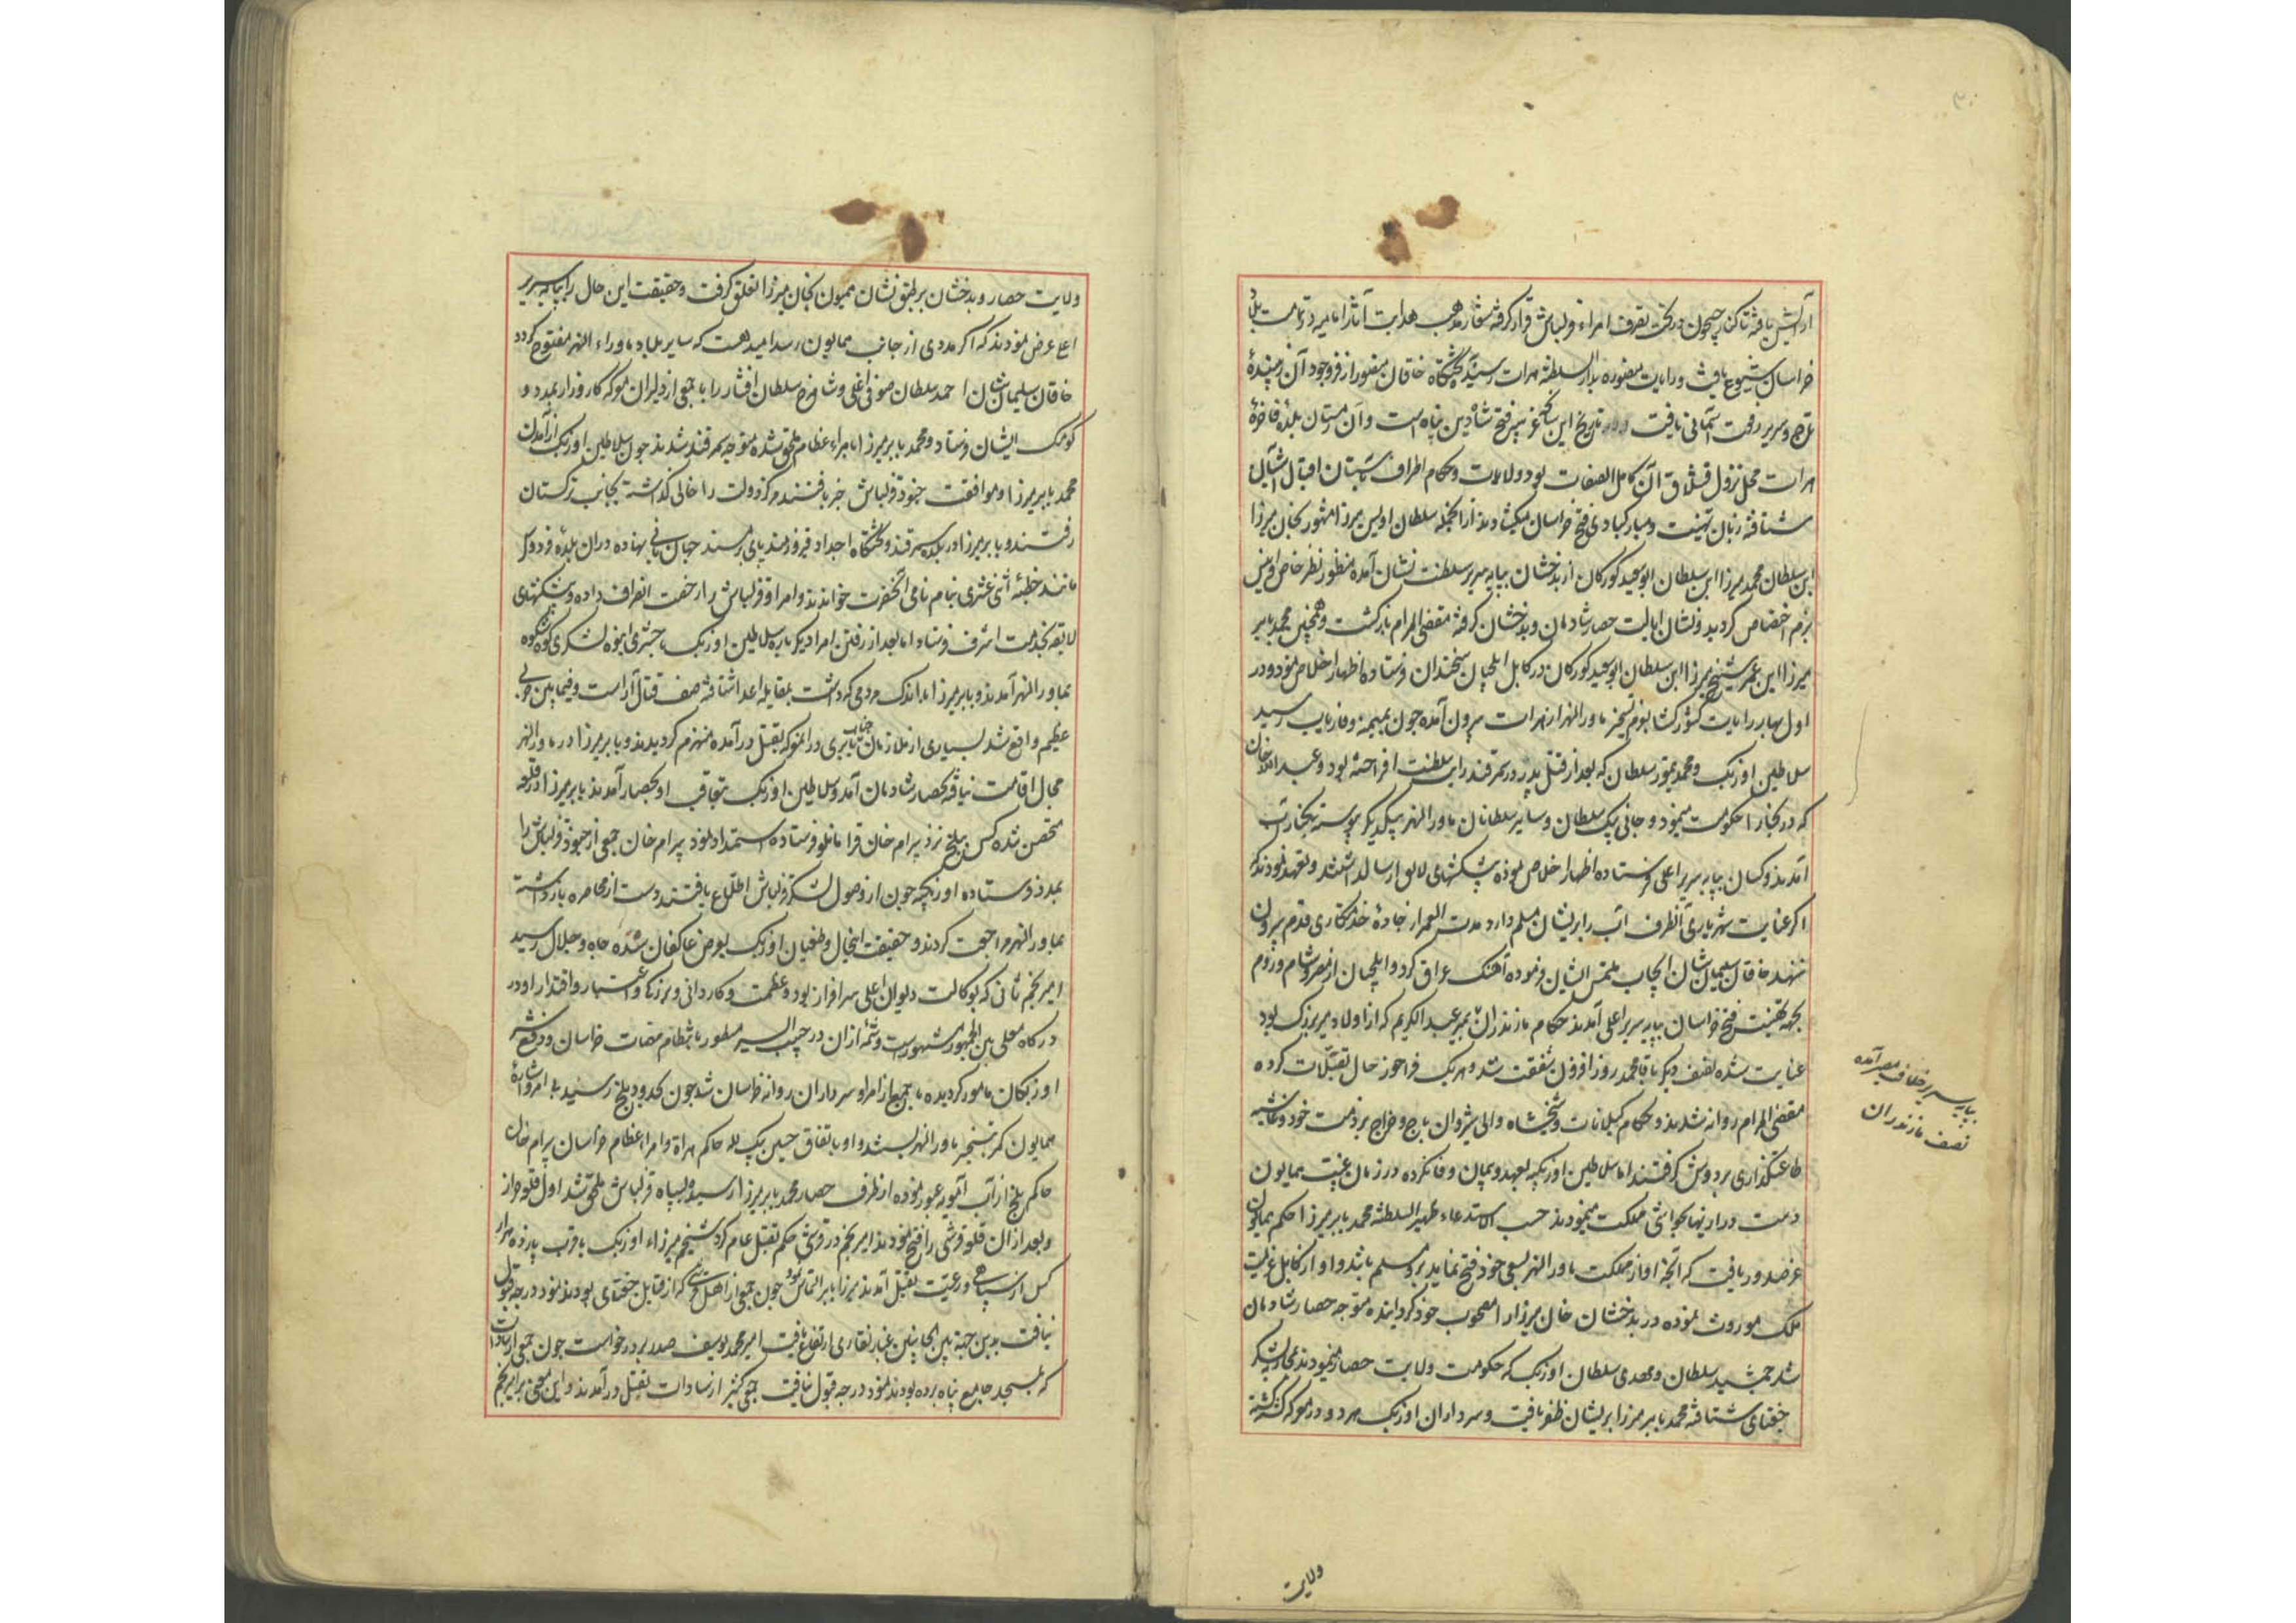 آرایش یافته تا کنار جیحون در تحت تصرف امراء قزلباش قرار گرفته شعار مذهب هدایت آثار امامیه در تمامت بلاد
خراسان شیوع یافت و رایات منصوره بدار السلطنه هرات رسید تختگاه خاقان منصور از فر وجود آن زیبنده
تاج و سریر رفعت آسمانی یافت و در تاریخ این فتح شاه دین پناه است و آن زمستان بلده فاخره
هرات محل نزول قشلاق آن کامل الصفات بود و ولات و حکام اطراف بآستان اقبال آشیان
شتافته زبان تهنیت و مبارکبادی فتح خراسان میگشادند از آنجمله سلطان اویس میرزا مشهور بخان میرزا
ابن سلطان محمود میرزا ابن سلطان ابوسعید کورکان از بدخشان بپایه سریر سلطنت نشان آمده منظور نظر خاص و امین
بزم اختصاص گردید و نشان ایالت حصار شادمان و بدخشان گرفته مقضی المرام بازگشت و همچنین محمد بابر
میرزا ابن عمر شیخ میرزا ابن سلطان ابوسعید کورکان در کابل ایلچیان سخندان فرستاده اظهار اخلاص نمود و در
اول بهار رایات کشورگشا بعزم تسخیر ماوراء النهر از هرات بیرون آمده چون بمیمنه و فاریاب رسید
سلاطین اوزبک و محمد تیمور سلطان که بعد از قتل پدر در سمرقند رایت سلطنت افراخته بود و عبید الله خان
که در بخارا حکومت مینمود و جانی بیک سلطان و سایر سلطانان ماوراء النهر بیکدیگر پیوسته بکنار آب
آمدند و کسان بپایه سریر اعلی فرستاده اظهار اخلاص نموده پیشکشهای لایق ارسال داشتند و تعهد نمودند که
اگر عنایت شهریاری آنطرف آب را بر ایشان مسلم دارد مدت العمر از جاده خدمتکاری قدم بیرون
ننهند خاقان سلیمان شان ایجاب ملتمس ایشان فرموده آهنگ عراق کرد و ایلچیان از مصر و شام و روم
بجهة تهنیت فتح خراسان بپایه سریر اعلی آمدند حکام مازندران میر عبد الکریم که از اولاد میر بزرگ بود
عنایت شده نصف دیگر بآقا محمد روز افزون شفقت شد و هر یک فراخور حال تقبلات کرده
مقضی المرام روانه شدند و حکام گیلانات و شیخشاه والی شیروان باج و خراج بر ذمت خود و غاشیه
طاعتگذاری بر دوش گرفتند اما سلاطین اوزبکیه بعهد و پیمان وفا نکرده در زمان غیبت همایون
دست درازیها بحواشی مملکت مینمودند حسب الاستدعاء ظهیر السلطنه محمد بابر میرزا حکم همایون
عز صدور یافت که آنچه او از مملکت ماوراء النهر بسعی خود فتح نماید برو مسلم باشد و او از کابل عزیمت
ملک موروث نموده در بدخشان خان میرزا را مصحوب خود گردانیده متوجه حصار شادمان
شد جمشید سلطان و مهدی سلطان اوزبک که حکومت ولایت حصار مینمودند بمحاربه لشکر
جغتای شتافته محمد بابر میرزا بر ایشان ظفر یافت و سرداران اوزبک هر دو در معرکه کشته گشته
بپایه سریر خلافت مصیر آمده
نصف مازندران
ولایت
ولایت حصار و بدخشان بر طبق نشان همیون بخان میرزا تعلق گرفت و حقیقت این حال را بپایه سریر
اعلی عرض نمودند که اگر مددی از جانب همایون رسد امید هست که سایر بلاد ماوراء النهر مفتوح گردد
خاقان سلیمان شان احمد سلطان صوفی اغلی و شاهرخ سلطان افشار را با جمعی از دلیران معرکه کارزار بمدد و
کومک ایشان فرستاد و محمد بابر میرزا با امراء عظام ملحق شده متوجه سمرقند شدند چون سلاطین اوزبک از آمدن
محمد بابر میرزا و موافقت جنود قزلباش خبر یافتند مرکز دولت را خالی گذاشته بجانب ترکستان
رفتند و بابر میرزا در بلده سمرقند و تختگاه اجداد فیروزمند پای بر مسند جهانبانی نهاده در آن بلده فردوس
مانند خطبه اثنی عشری بنام نامی آنحضرت خواندند و امراء قزلباش را رخصت انصراف داده و پیشکشهای
لایقه بخدمت اشرف فرستاد اما بعد از رفتن امرا دیگر باره سلاطین اوزبک با حشری انبوه لشکری کوه شکوه
بماوراء النهر آمدند و بابر میرزا با اندک مردمی که داشت بمقابله اعدا شتافته صف قتال آراست و فیمابین حربی
عظیم واقع شد بسیاری از ملازمان جناب بابری در آن معرکه بقتل درآمده منهزم گردیدند و بابر میرزا در ماوراء النهر
مجال اقامت نیافته بحصار شادمان آمد و سلاطین اوزبک بتعاقب او بحصار آمدند بابر میرزا در قلعه
متحصن شده کس ببلخ نزد بیرام خان قرامانلو فرستاده استمداد نمود بیرام خان جمعی از جنود قزلباش را
بمدد فرستاده اوزبکیه چون از وصول لشکر قزلباش اطلاع یافتند دست از محاصره بازداشته
بماوراء النهر مراجعت کردند و حقیقت اینحال و طغیان اوزبک بعرض عاکفان سده جاه و جلال رسید
امیر نجم ثانی که بوکالت دیوان اعلی سرافراز بود و عظمت و کاردانی و بزرگی و اعتبار و اقتدار او در
درگاه معلی بین الجمهور مشهورست و شمه از آن در حبیب السیر مسطور بانتظام مهمات خراسان و دفع شر
اوزبکان مامور گردیده با جمعی از امرا و سرداران روانه خراسان شد چون بحدود بلخ رسید بی امر و اشاره
همایون کمر تسخیر ماوراء النهر بست و او باتفاق حسین بیک لله حاکم هراة و امراء عظام خراسان بیرام خان
حاکم بلخ از آب آمویه عبور نموده از طرف حصار محمد بابر میرزا رسیده بسپاه قزلباش ملحق شد اول قلعه خزار
و بعد از آن قلعه قرشی را فتح نمودند امیر نجم در قرشی حکم بقتل عام کرد شیخم میرزاء اوزبک با قرب پانزده هزار
کس از سپاهی و رعیت بقتل آمدند میرزا بابر التماس نمود چون جمعی از اهل قرشی که از قبایل جغتای بودند نمود درجه قبول
نیافت بدین جهة بین الجانبین غبار نقاری ارتفاع یافت امیر محمد یوسف صدر درخواست چون جمعی از سادات
که بمسجد جامع پناه برده بودند نمود درجه قبول نیافت جمعی کثیر از سادات بقتل درآمدند و این معنی بر امیر نجم